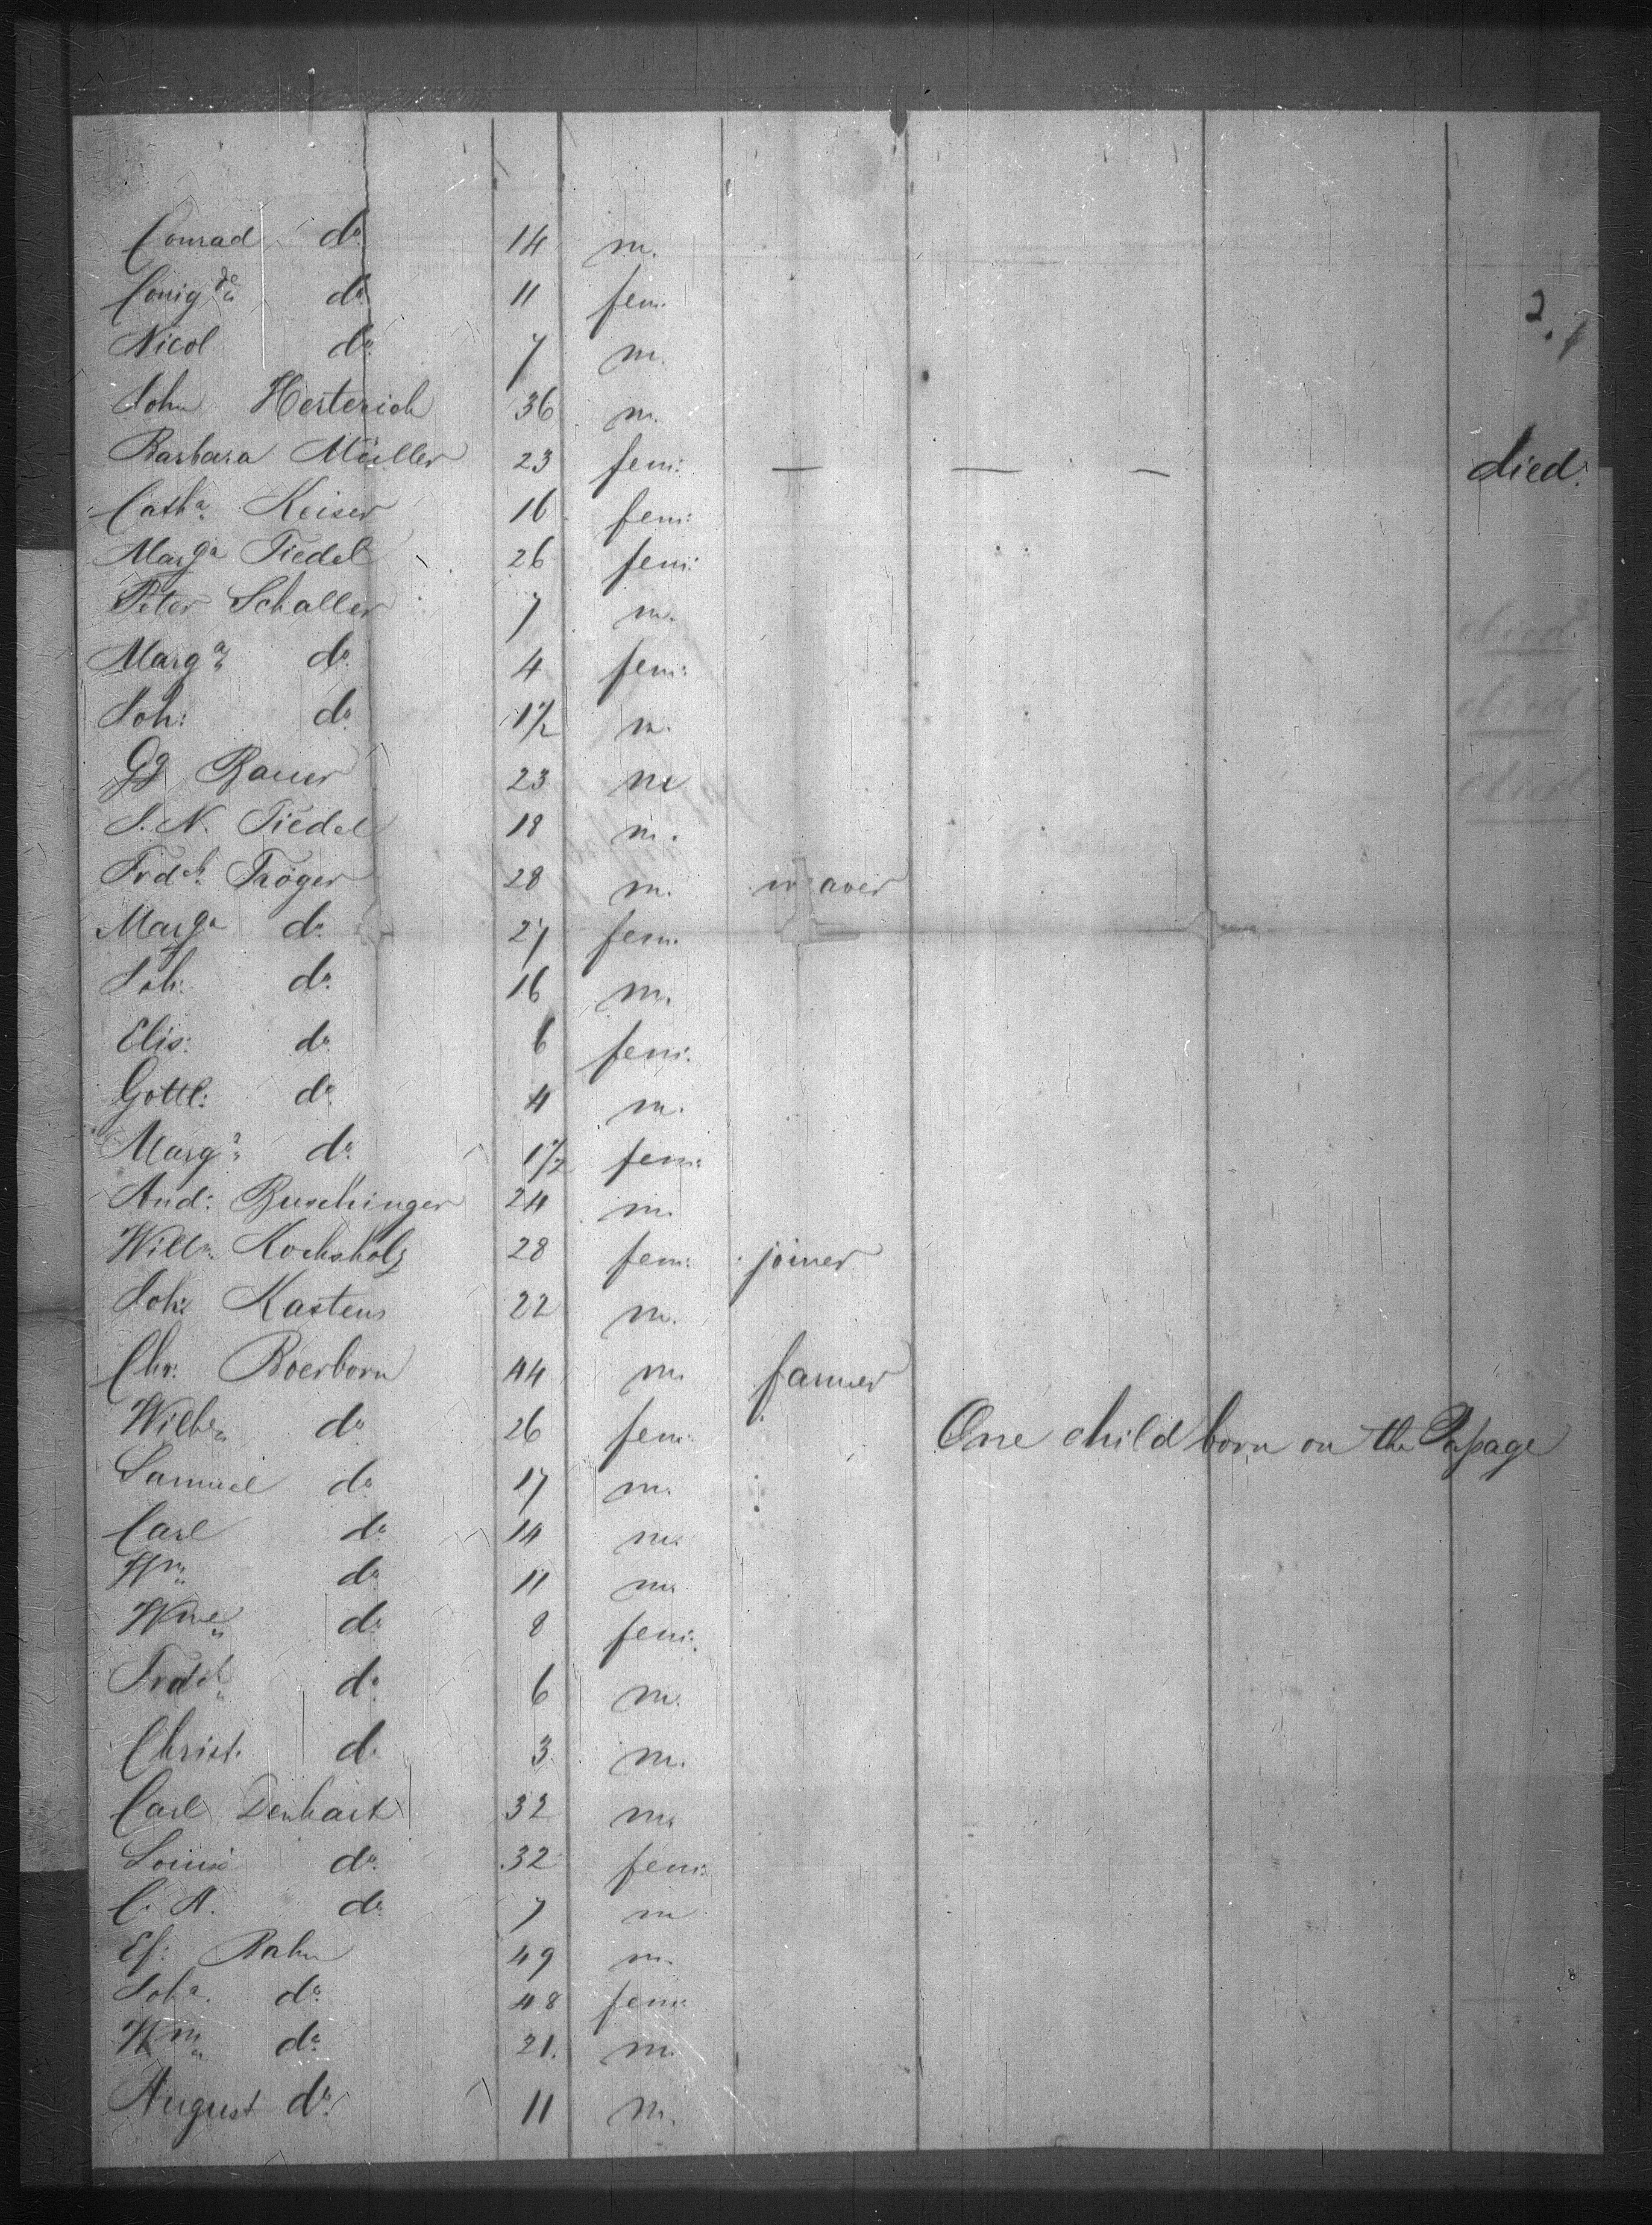 Conrad do. 14 m.
Conigda do. 11 fem.
Nicol do. 7 m.
2.
Joh. Herterich 36 m.
Barbara Müller 23 fem: — — — died.
Catha. Keiser 16 fem:
Marga Tiedel 26 fem:
Peter Schaller 7 m.
Marga. do. 4 fem:
Joh: do. 1 1/2 m.
Gg Bauer 23 m
J. N. Tiedel 18 m.
Frdch. Tröger 28 m. weaver
Marga do. 27 fem.
Joh: do. 16 m.
Elis: do. 6 fem:
Gottl: do. 4 m.
Marga. do. 1 1/2 fem:
And: Buschinger 24 m.
Willm. Kochsholz 28 fem: joiner
Joh: Kastens 22 m.
Chr: Boerborn 44 m. farmer
Wilhe. do. 26 fem: One child born on the Passage
Samuel do. 17 m.
Carl do. 14 m.
Wm. do. 11 m.
Wme. do. 8 fem:
Frdch. do. 6 m.
Christ. do. 3 m.
Carl Denhart 32 m.
Louis do. 32 fem:
C. A. do. 7 m
Ef: Rahn 49 m.
Joha. do. 48 fem:
Wm. do. 21. m.
August do. 11 m.